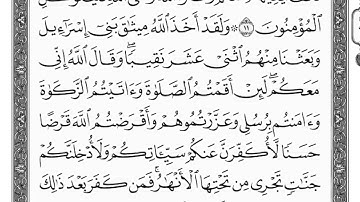 ٱلْمُؤْمِنُونَ ١١ ۞ وَلَقَدْ أَخَذَ ٱللَّهُ مِيثَٰقَ بَنِىٓ إِسْرَٰٓءِيلَ
وَبَعَثْنَا مِنْهُمُ ٱثْنَىْ عَشَرَ نَقِيبًا ۖ وَقَالَ ٱللَّهُ إِنِّى
مَعَكُمْ ۖ لَئِنْ أَقَمْتُمُ ٱلصَّلَوٰةَ وَءَاتَيْتُمُ ٱلزَّكَوٰةَ
وَءَامَنتُم بِرُسُلِى وَعَزَّرْتُمُوهُمْ وَأَقْرَضْتُمُ ٱللَّهَ قَرْضًا
حَسَنًا لَّأُكَفِّرَنَّ عَنكُمْ سَيِّـَٔاتِكُمْ وَلَأُدْخِلَنَّكُمْ
جَنَّٰتٍ تَجْرِى مِن تَحْتِهَا ٱلْأَنْهَٰرُ ۚ فَمَن كَفَرَ بَعْدَ ذَٰلِكَ